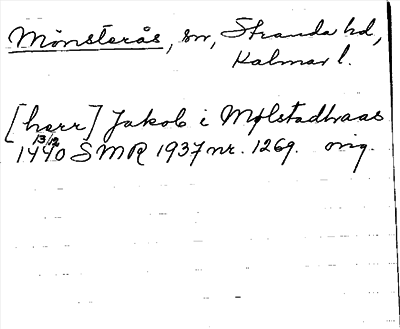 Mönsterås, sn, Stranda hd,
Kalmar l.
[herr] Jakob i Mølstadhraas
1440 13/12 SMR 1937 nr. 1269. orig.